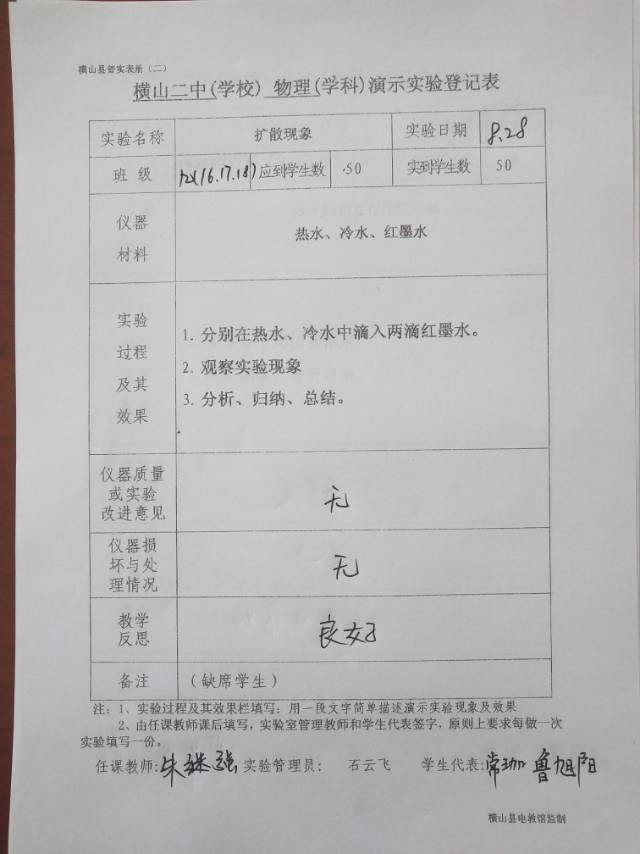 横山县普实表册（二）
横山二中(学校) 物理(学科)演示实验登记表
实验名称 扩散现象 实验日期 8.28
班 级 (16.17.18) 应到学生数 50 实到学生数 50
仪器
材料
热水、冷水、红墨水
实验
过程
及其
效果
1. 分别在热水、冷水中滴入两滴红墨水。
2. 观察实验现象
3. 分析、归纳、总结。
仪器质量
或实验
改进意见
无
仪器损
坏与处
理情况
无
教学
反思
良好
备注 （缺席学生）
注：1、实验过程及其效果栏填写：用一段文字简单描述演示实验现象及效果
2、由任课教师课后填写，实验室管理教师和学生代表签字，原则上要求每做一次
实验填写一份。
任课教师:朱继强 实验管理员: 石云飞 学生代表:常珈 鲁旭阳
横山县电教馆监制